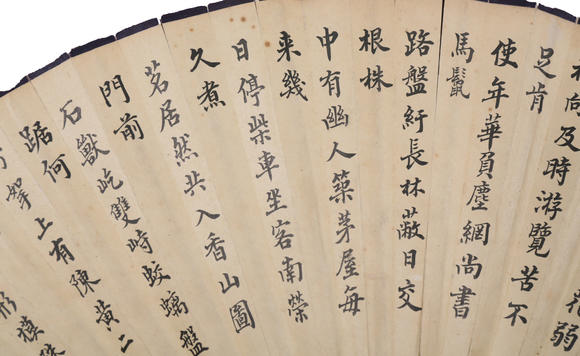 花弱
向及時游覽苦不
足肯
使年華負塵網尚書
馬鬣
路盤紆長林蔽日交
根株
中有幽人築茅屋每
来幾
日停柴車坐客南榮
久煮
茗居然共入香山圖
門前
石獸屹雙峙蛟螭盤
踞何
上有陳黄二
形模